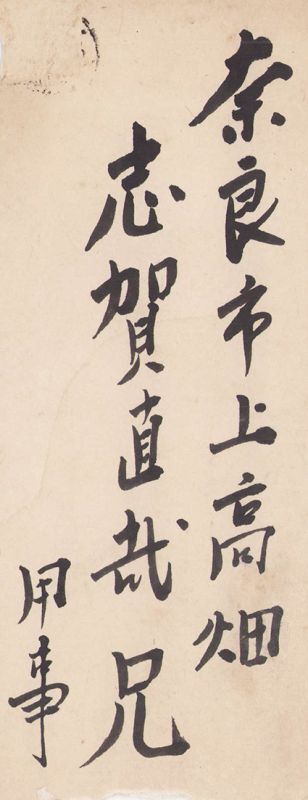 奈良市上高畑
志賀直哉兄
用事